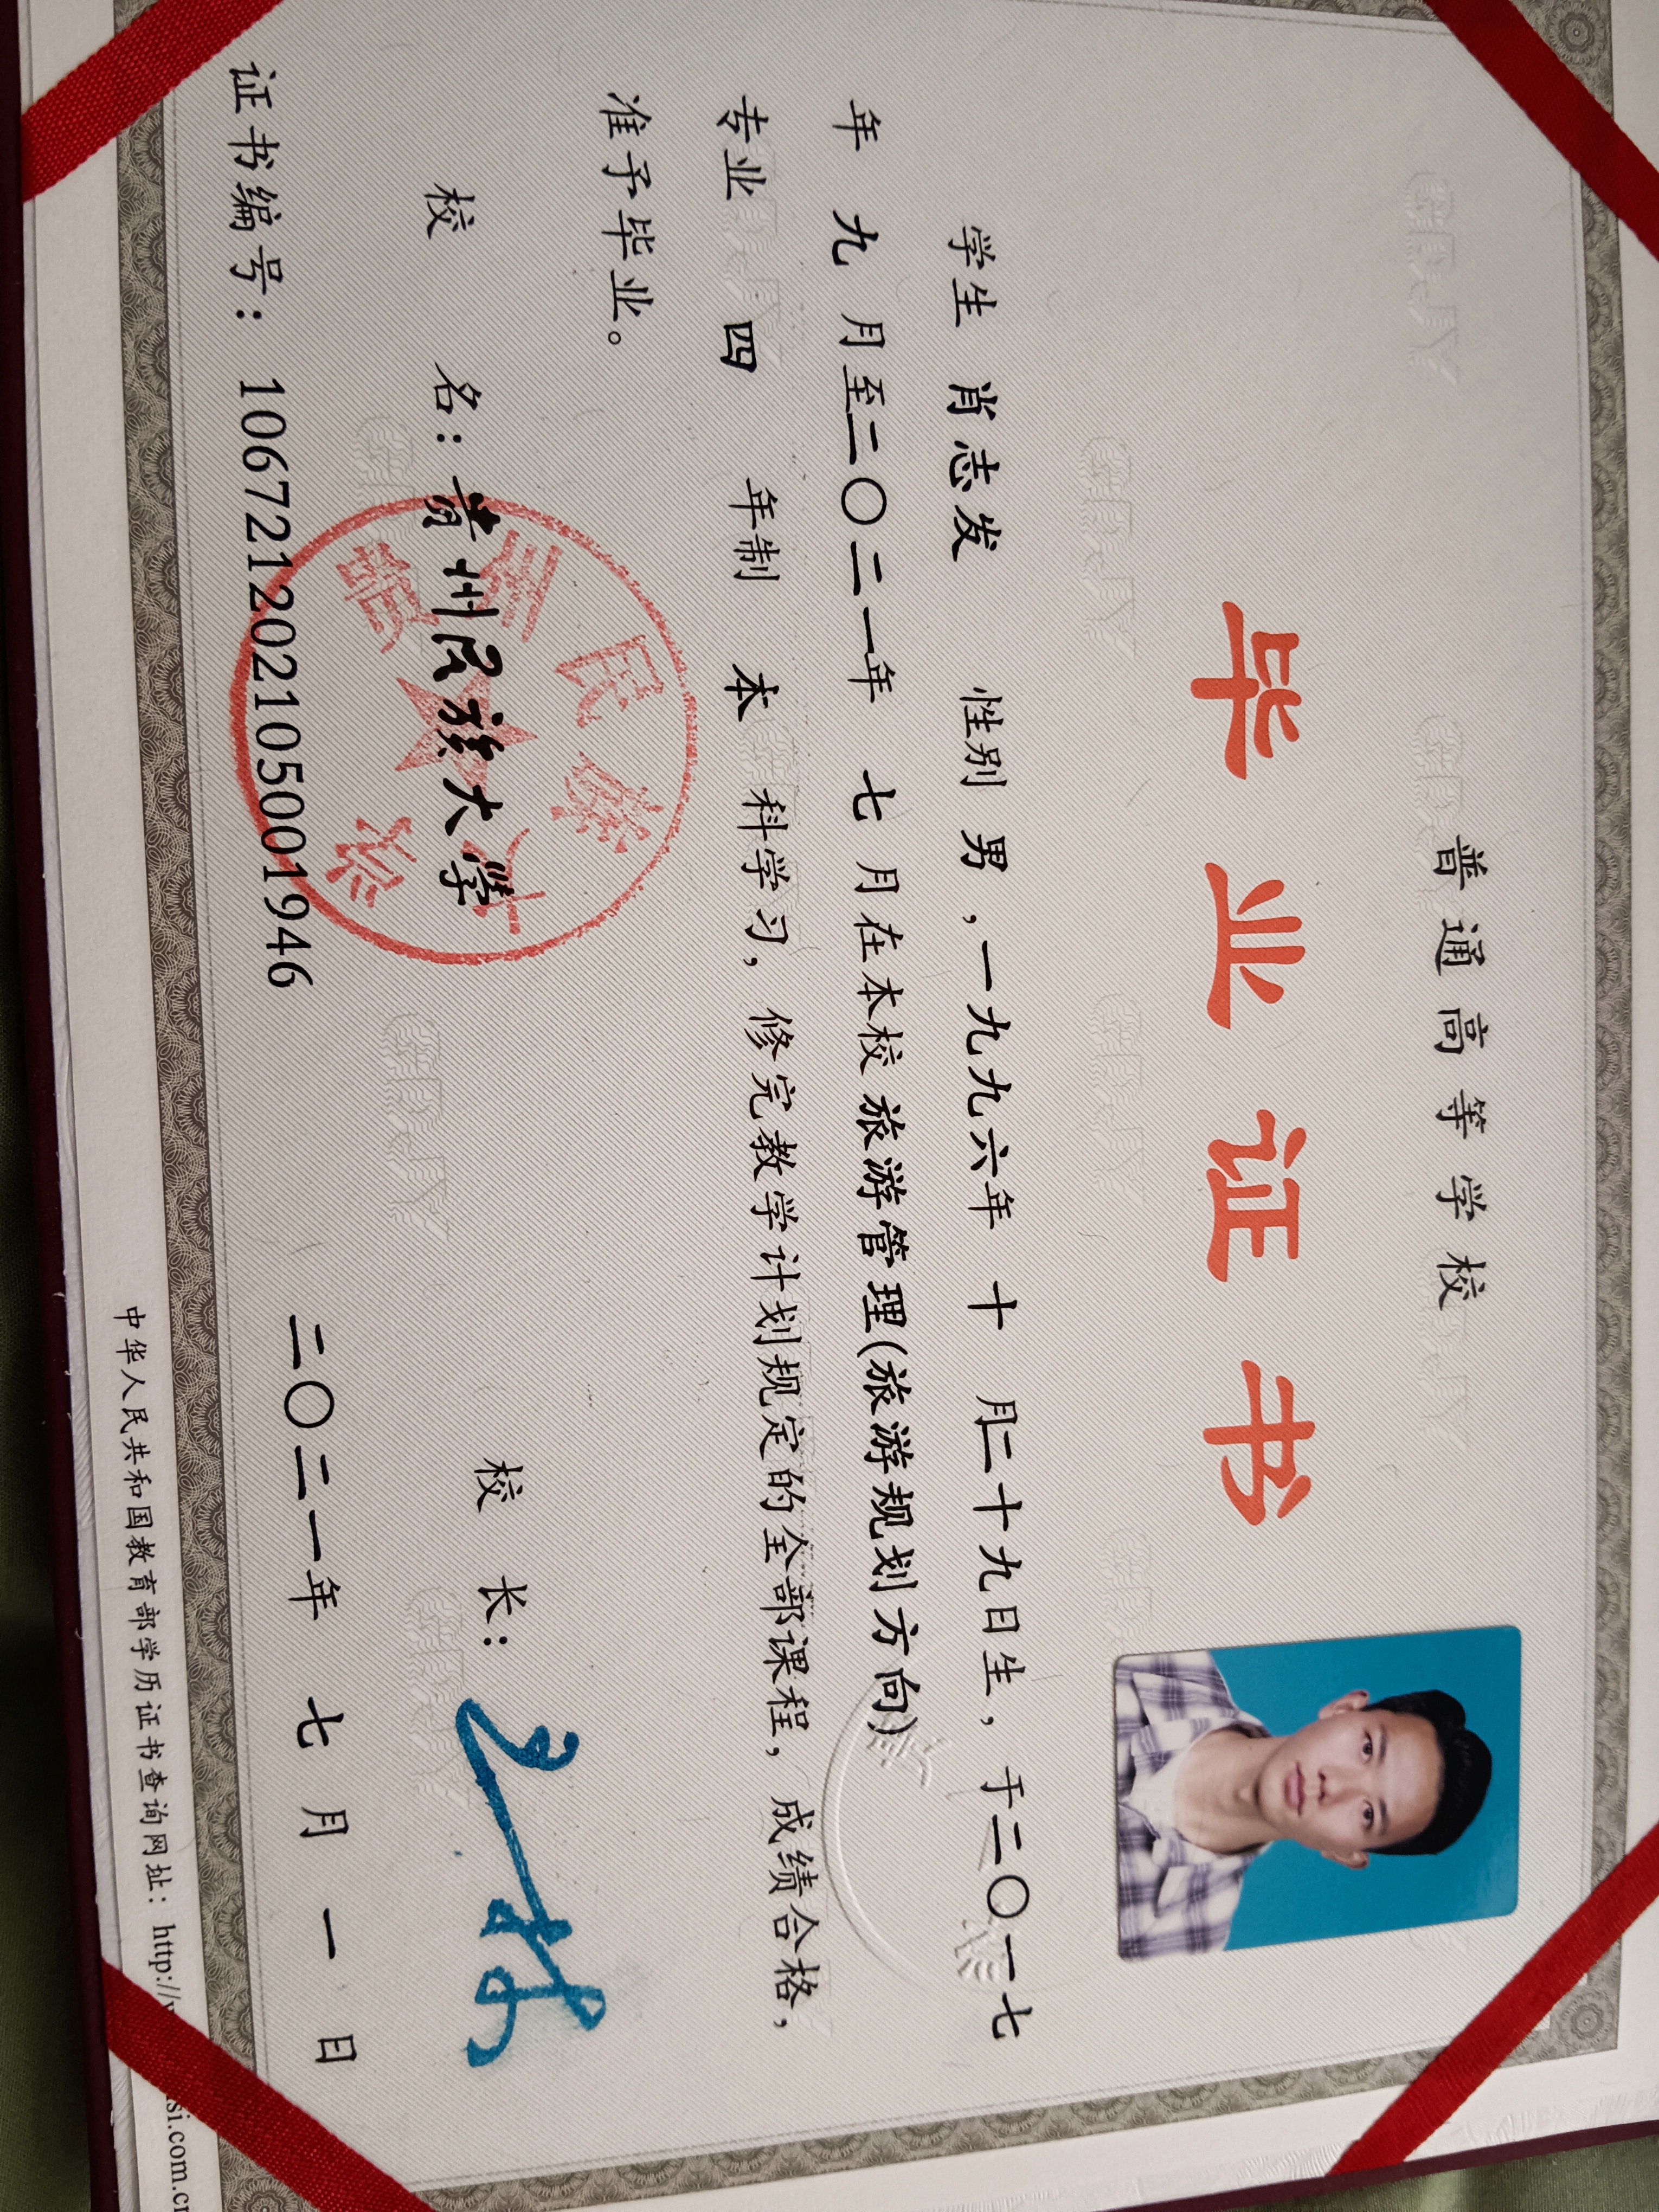 普通高等学校
毕业证书
学生 肖志发 性别 男，一九九六年 十 月二十九日生，于二〇一七
年 九 月至二〇二一年 七 月在本校 旅游管理(旅游规划方向)
专业 四 年制 本 科学习，修完教学计划规定的全部课程，成绩合格，
准予毕业。
校 名：贵州民族大学 校 长：
贵州民族大学
证书编号：106721202105001946 二〇二一年 七 月 一 日
中华人民共和国教育部学历证书查询网址：http://
si.com.cn